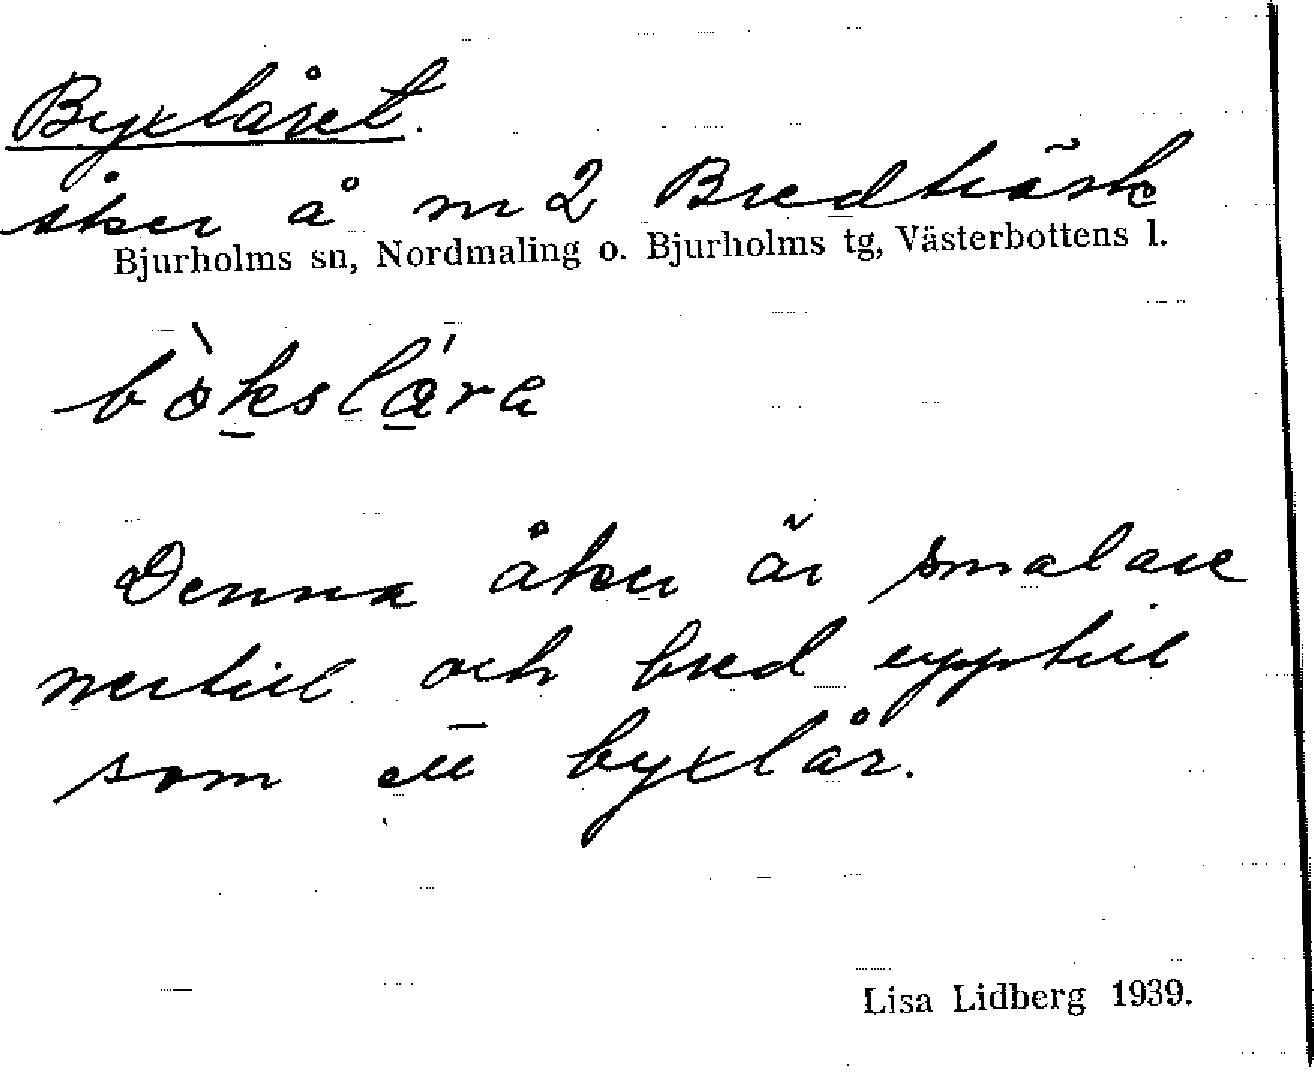 Byxlåret.
åker å nr 2 Bredträsk
Bjurholms sn, Nordmaling o. Bjurholms tg, Västerbottens l.
bòkslára
Denna åker är smalare
nertill och bred upptill
som ett byxlår.
Lisa Lidberg 1939.